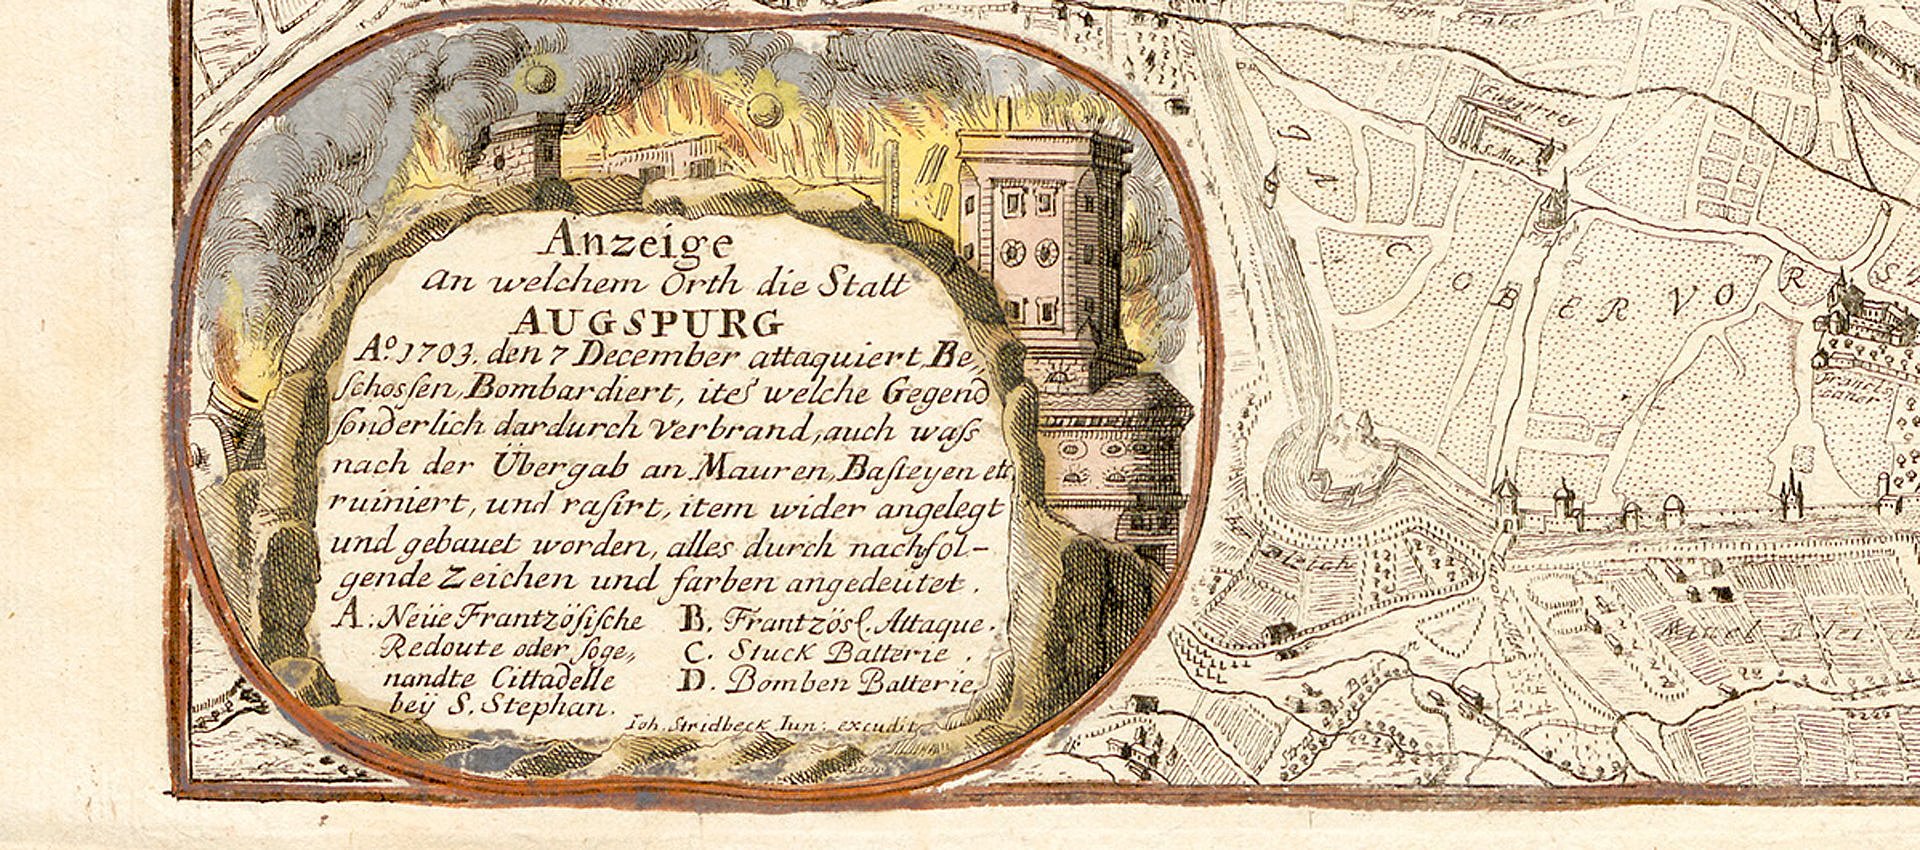 Anzeige
an welchem Orth die Statt
AUGSPURG
Aº. 1703. den 7 December attaquiert, Be,,
schossen, Bombardiert, ites welche Gegend
sonderlich dardurch verbrand, auch wass
nach der Übergab an Mauren, Basteyen etc
ruiniert, und rasirt, item wider angelegt
und gebauet worden, alles durch nachfol-
gende Zeichen und farben angedeütet.
A. Neüe Frantzösische
Redoute oder soge,,
nandte Cittadelle
beÿ S. Stephan.
B. Frantzös. Attaque.
C. Stuck Batterie.
D. Bomben Batterie.
Joh. Stridbeck Iun: excudit
Graben
Fuggerey
S. Mar
IACOBER VOR S
Francis,,
caner
Bleich